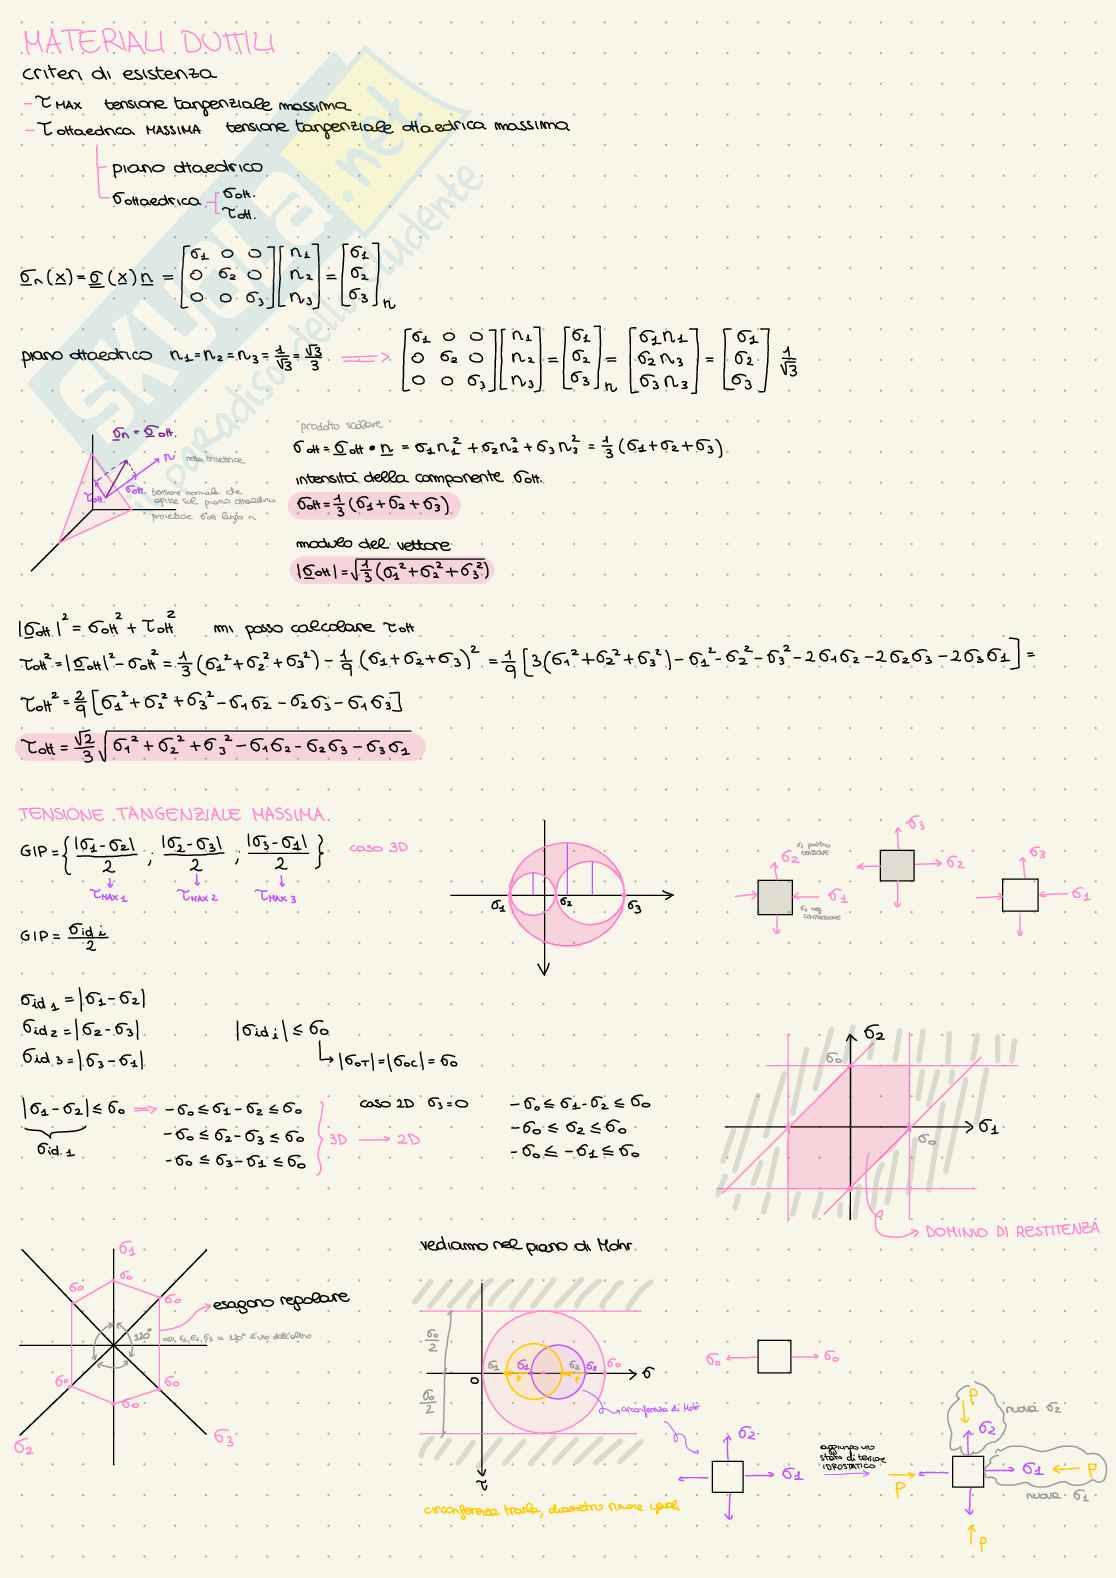 MATERIALI DUTTILI
criteri di esistenza
- τ MAX tensione tangenziale massima
- τ ottaedrica MASSIMA tensione tangenziale ottaedrica massima
piano ottaedrico
σ ottaedrica σott. τott.
SKUOLA.net
σn(x) = σ(x) n = [σ1 0 0; 0 σ2 0; 0 0 σ3] [n1; n2; n3] = [σ1; σ2; σ3]n
piano ottaedrico n1 = n2 = n3 = 1/√3 = √3/3 ⇒ [σ1 0 0; 0 σ2 0; 0 0 σ3] [n1; n2; n3] = [σ1; σ2; σ3]n = [σ1n1; σ2n3; σ3n3] = [σ1; σ2; σ3] 1/√3
prodotto scalare
σn = σott.
n
τott
σott.
tensione normale che
agisce sul piano ottaedrico
proiezione σott lungo n
σott = σott • n = σ1n1² + σ2n2² + σ3n3² = 1/3 (σ1+σ2+σ3)
intensità della componente σott.
σott = 1/3 (σ1+σ2+σ3)
modulo del vettore
|σott| = √(1/3 (σ1²+σ2²+σ3²))
|σott|² = σott² + τott² mi posso calcolare τott
τott² = |σott|² - σott² = 1/3 (σ1²+σ2²+σ3²) - 1/9 (σ1+σ2+σ3)² = 1/9 [3(σ1²+σ2²+σ3²) - σ1² - σ2² - σ3² - 2σ1σ2 - 2σ2σ3 - 2σ3σ1] =
τott² = 2/9 [σ1²+σ2²+σ3² - σ1σ2 - σ2σ3 - σ1σ3]
τott = √2/3 √(σ1²+σ2²+σ3² - σ1σ2 - σ2σ3 - σ3σ1)
TENSIONE TANGENZIALE MASSIMA
GIP = { |σ1-σ2|/2 ; |σ2-σ3|/2 ; |σ3-σ1|/2 } caso 3D
τMAX1 τMAX2 τMAX3
σ1 σ2 σ3
σ2 σ1
σ3 σ2
σ3 σ1
GIP = σid i/2
σid1 = |σ1-σ2|
σid2 = |σ2-σ3| |σid i| ≤ σ0
σid3 = |σ3-σ1| → |σOT| = |σOC| = σ0
|σ1-σ2| ≤ σ0 ⇒ -σ0 ≤ σ1-σ2 ≤ σ0
σid.1
-σ0 ≤ σ2-σ3 ≤ σ0
-σ0 ≤ σ3-σ1 ≤ σ0
3D → 2D
caso 2D σ3=0
-σ0 ≤ σ1-σ2 ≤ σ0
-σ0 ≤ σ2 ≤ σ0
-σ0 ≤ -σ1 ≤ σ0
σ2
σ0
σ1
σ0
DOMINIO DI RESTITENZA
σ1
σ0 σ0 σ0
120°
σ0 σ0 σ0
σ2 σ3
esagono regolare
vediamo nel piano di Mohr
σ0/2
σ0/2
0
σ1 σ1 σ2 σ2 σ0 σ
P P
τ
circonferenza di Mohr
circonferenza trasla, diametro rimane uguale
σ0 σ0
σ2
σ1
aggiungo uno
stato di tensione
IDROSTATICO
P
P
σ2
nuova σ2
σ1 P
nuova σ1
P